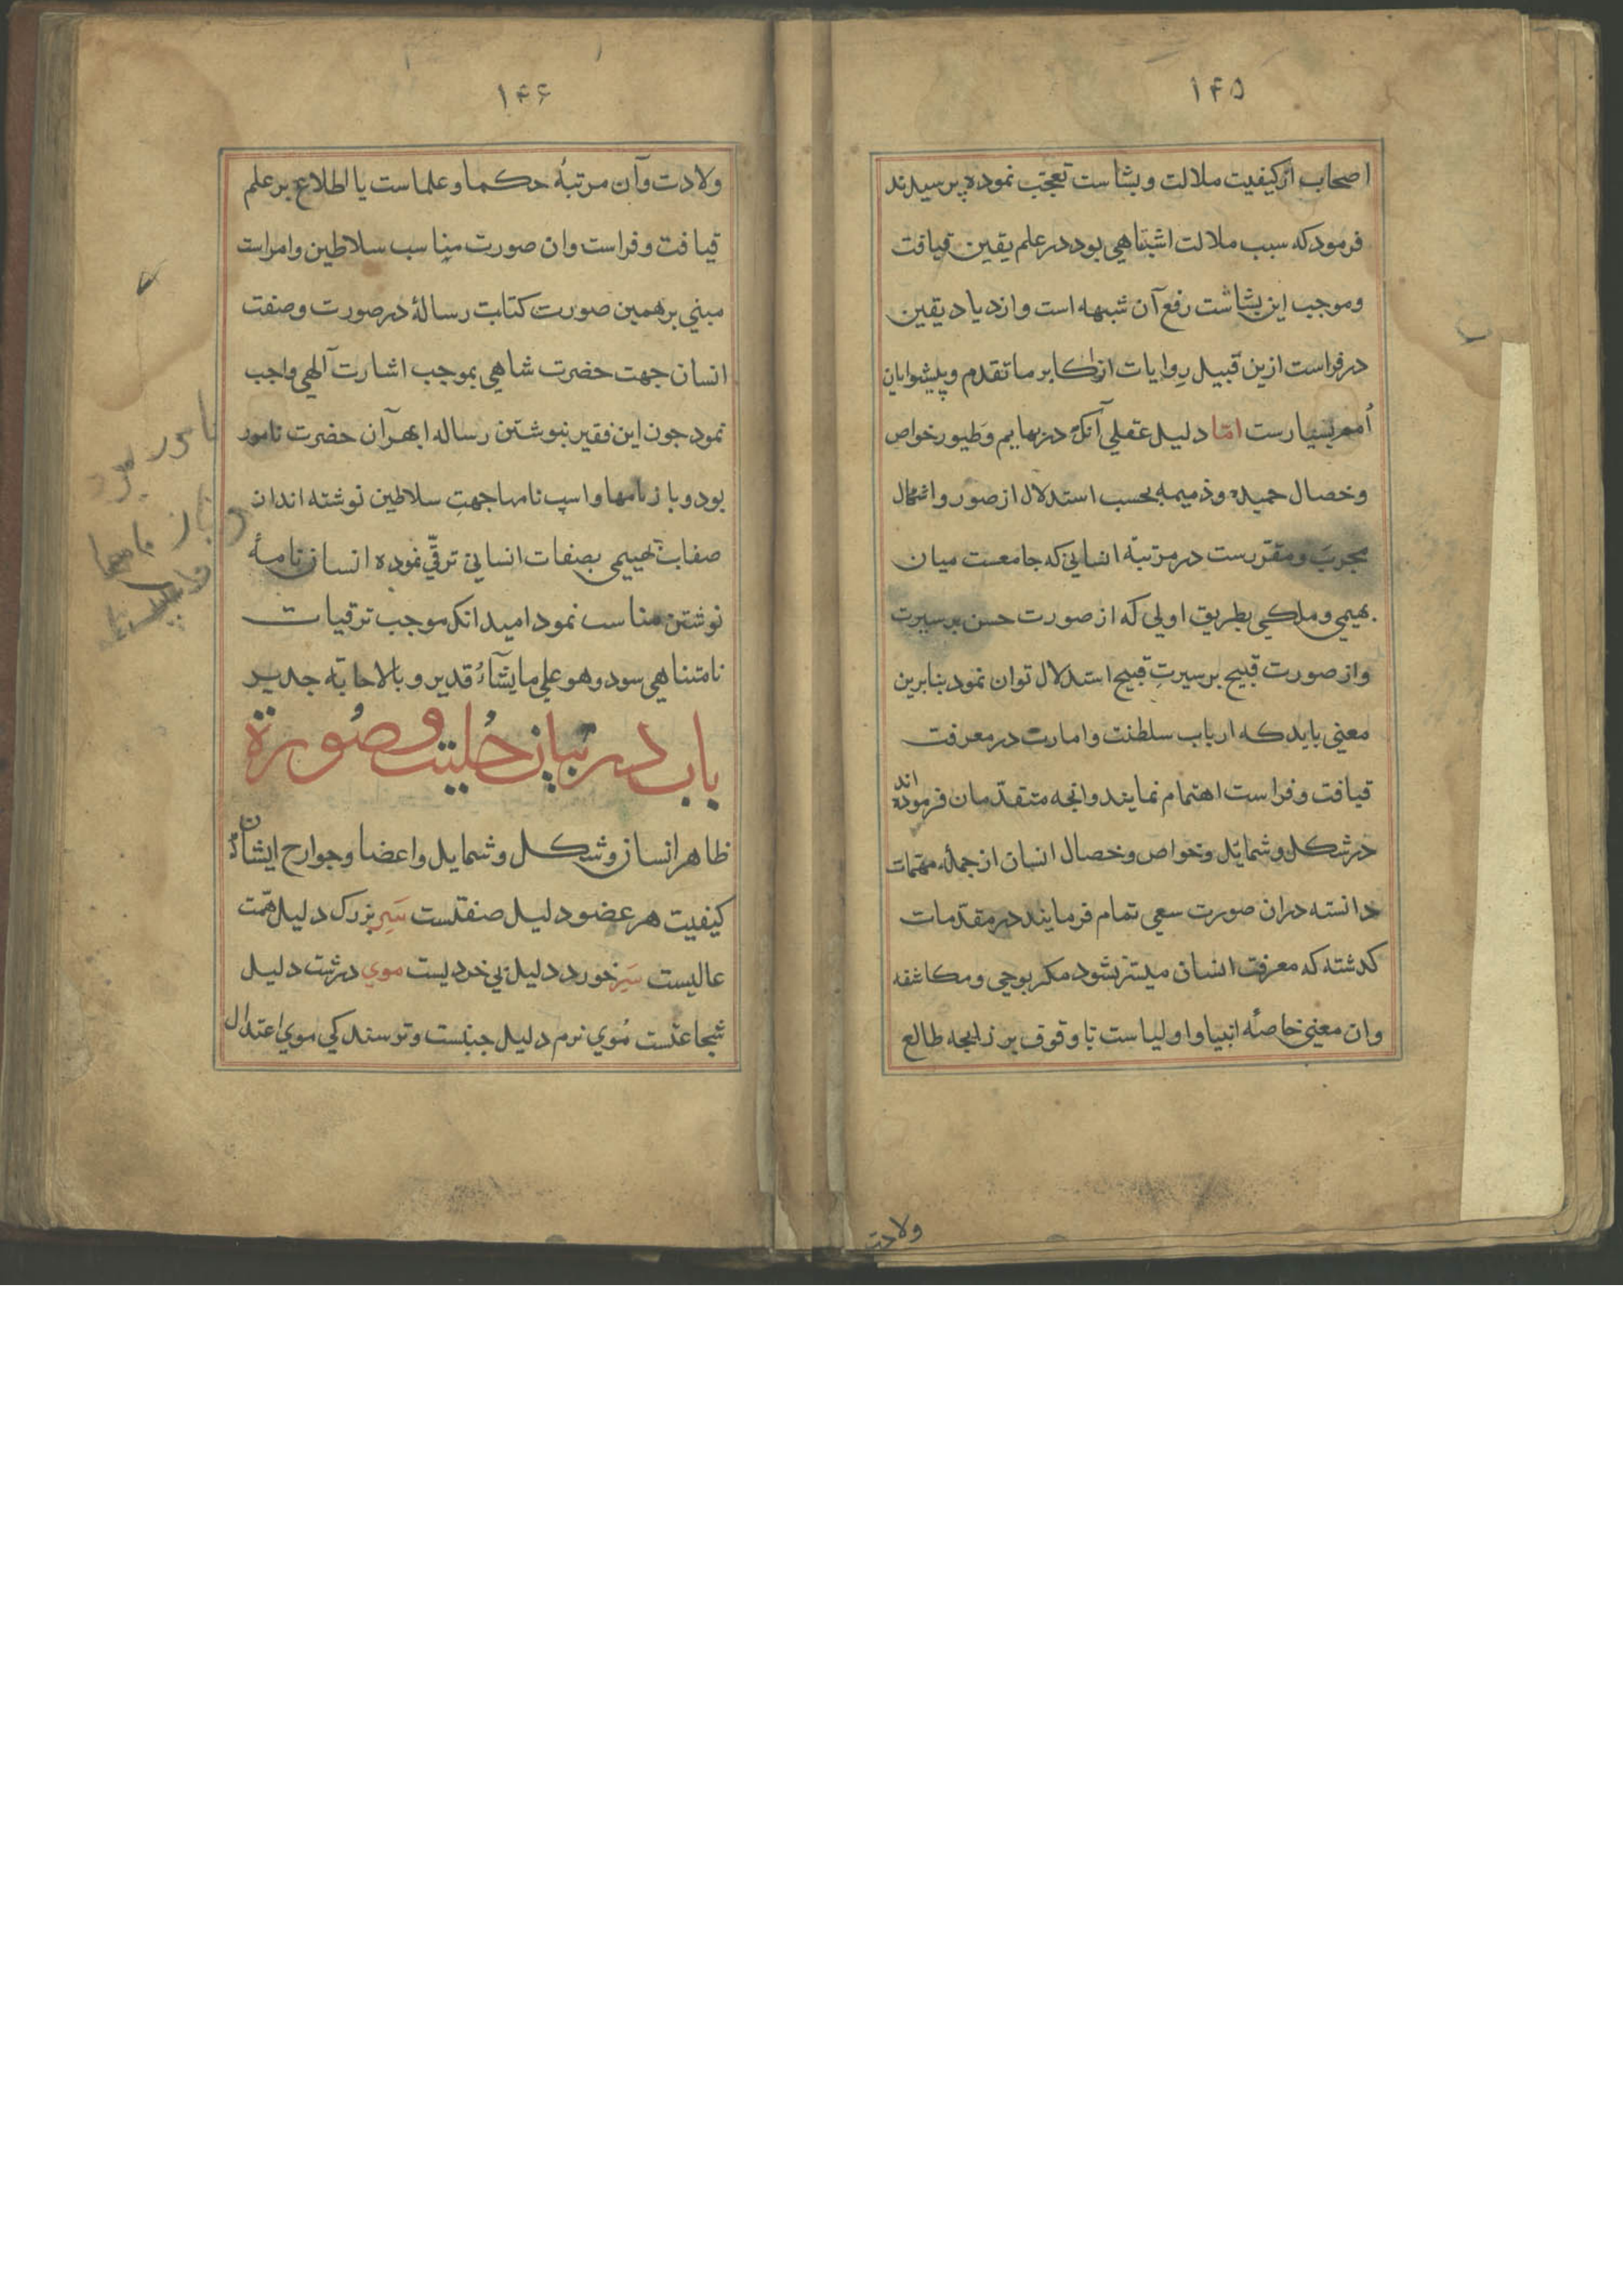 ۱۴۵
اصحاب از کیفیت ملالت و بشاست تعجّب نموده پرسیدند
فرمود که سبب ملالت اشتباهی بود در علم یقین قیافت
وموجب این بشاشت رفع آن شبهه است وازدیاد یقین
در فراست ازین قبیل رِوایات از اکابر ما تقدم وپیشوایان
اُمم بسیارست امّا دلیل عقلی آنکه در بهایم وَطیور خواص
وخصال حمیده وذمیمه بحسب استدلال از صور واشکال
مجربَ ومقرّرست در مرتبهٔ انسانی که جامعست میان
بهیمی وملکی بطریق اولی که از صورت حسن بر سیرت
واز صورت قبیح بر سیرتِ قبیح استدلال توان نمود بنابرین
معنی باید که ارباب سلطنت وامارت در معرفت
قیافت وفراست اهتمام نمایند وانجه متقدّمان فرموده اند
در شکل وشمایل وخواص وخصال انسان از جملهٔ مهمّات
دانسته دران صورت سعی تمام فرمایند در مقدّمات
کدشته که معرفت انسان میسّر نشود مکر بوحی ومکاشفه
وان معنی خاصهٔ انبیا واولیاست تا وقوف بر زایجه طالع
ولادت
۱۴۶
ولادت وآن مرتبهٔ حکما وعلماست یا اطلاع بر علم
قیافت وفراست وان صورت مناسب سلاطین وامراست
مبنی بر همین صورت کتابت رسالهٔ در صورت وصفت
انسان جهت حضرت شاهی بموجب اشارت آلهی واجب
نمود جون این فقیر بنوشتن رساله ابهر آن حضرت نامور
بود وباز نامها واسپ نامها جهتِ سلاطین نوشته اند ان
صفات بهیمی بصفات انسانی ترقّی نموده انسان نامهٔ
نوشتن مناسب نمود امید انکه موجب ترقیات
نامتناهی سود وهو علی ما یشآءُ قدیر وبالاحابّه جدیر
باب در بیان حُلیت وصُورة
ظاهر انسان وشکل وشمایل واعضا وجوارح ایشان
کیفیت هر عضو دلیل صفتلست سَرِ بزرک دلیل همّت
عالیست سَرِ خورد دلیل بی خردیست موی درشت دلیل
شجاعتست مُوی نرم دلیل جبنست وترسندکی موی اعتدال
نامور بود
وباز نامها
واسپ